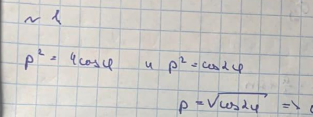 ~ 1
ρ² = 4cosφ и ρ² = cos2φ
ρ = √cos2φ ⇒